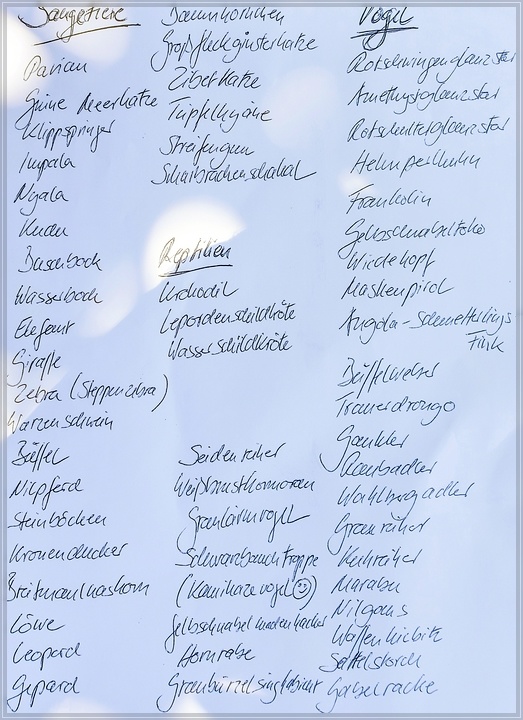 Säugetiere
Pavian
Grüne Meerkatze
Klippspringer
Impala
Nyala
Kudu
Buschbock
Wasserbock
Elefant
Giraffe
Zebra (Steppenzebra)
Warzenschwein
Büffel
Nilpferd
Steinböckchen
Kronenducker
Breitmaulnashorn
Löwe
Leopard
Gepard
Baumhörnchen
Großfleckginsterkatze
Zibetkatze
Tüpfelhyäne
Streifengnu
Schabrackenschakal
Reptilien
Krokodil
Lepordenschildkröte
Wasserschildkröte
Seidenreiher
Weißbrustkormoran
Graulärmvogel
Schwarzbauchtrappe
(Kamikazevogel 😊)
Gelbschnabelmadenhacker
Hornrabe
Graubürzelsinghabicht
Vögel
Rotschwingenglanzstar
Amethystglanzstar
Rotschulterglanzstar
Helmperlhuhn
Frankolin
Gelbschnabeltoko
Wiedehopf
Maskenpirol
Angola-Schmetterlings
Fink
Büffelweber
Trauerdrongo
Gaukler
Raubadler
Wahlbergadler
Graureiher
Kuhreiher
Marabu
Nilgans
Waffenkiebitz
Sattelstorch
Gabelracke